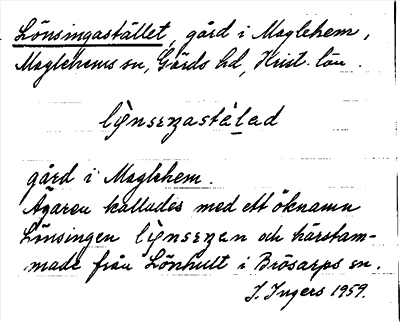 Lönsingastället, gård i Maglehem,
Maglehems sn, Gärds hd, Krist. län.
lỳnsɛŋastɛ́lad
gård i Maglehem.
Ägaren kallades med ett öknamn
Lönsingen lỳnsɛŋɛn och härstam-
made från Lönhult i Brösarps sn.
I. Ingers 1959.